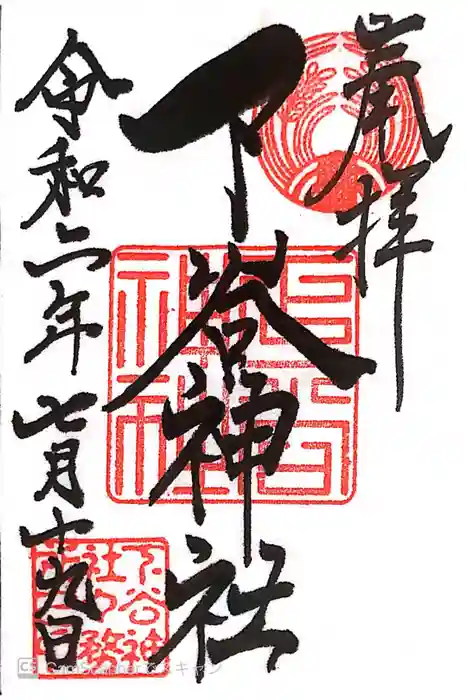 奉拝
下谷神社
令和六年七月十九日
下谷神
社社務
CS CamScannerでスキャン